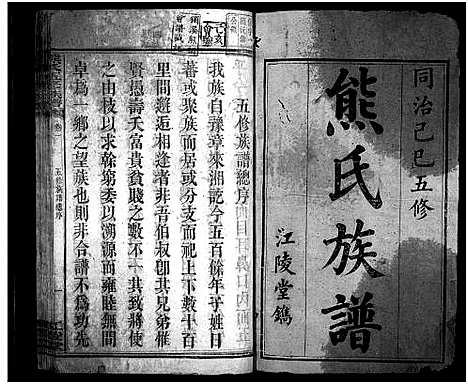 同治己巳五修
熊氏族譜
江陵堂鐫
五修族譜總序
我族自豫章來湘訖今五百餘年子姓日
蕃或聚族而居或分支而祀上下數十百
里間邂逅相逢者非吾伯叔卽其兄弟催
賢愚壽夭富貴貧賤之數不一其致將使
之由枝以求幹窮委以溯源而雍睦無間
卓爲一鄉之望族也則非合譜不為功光
五修族譜總序